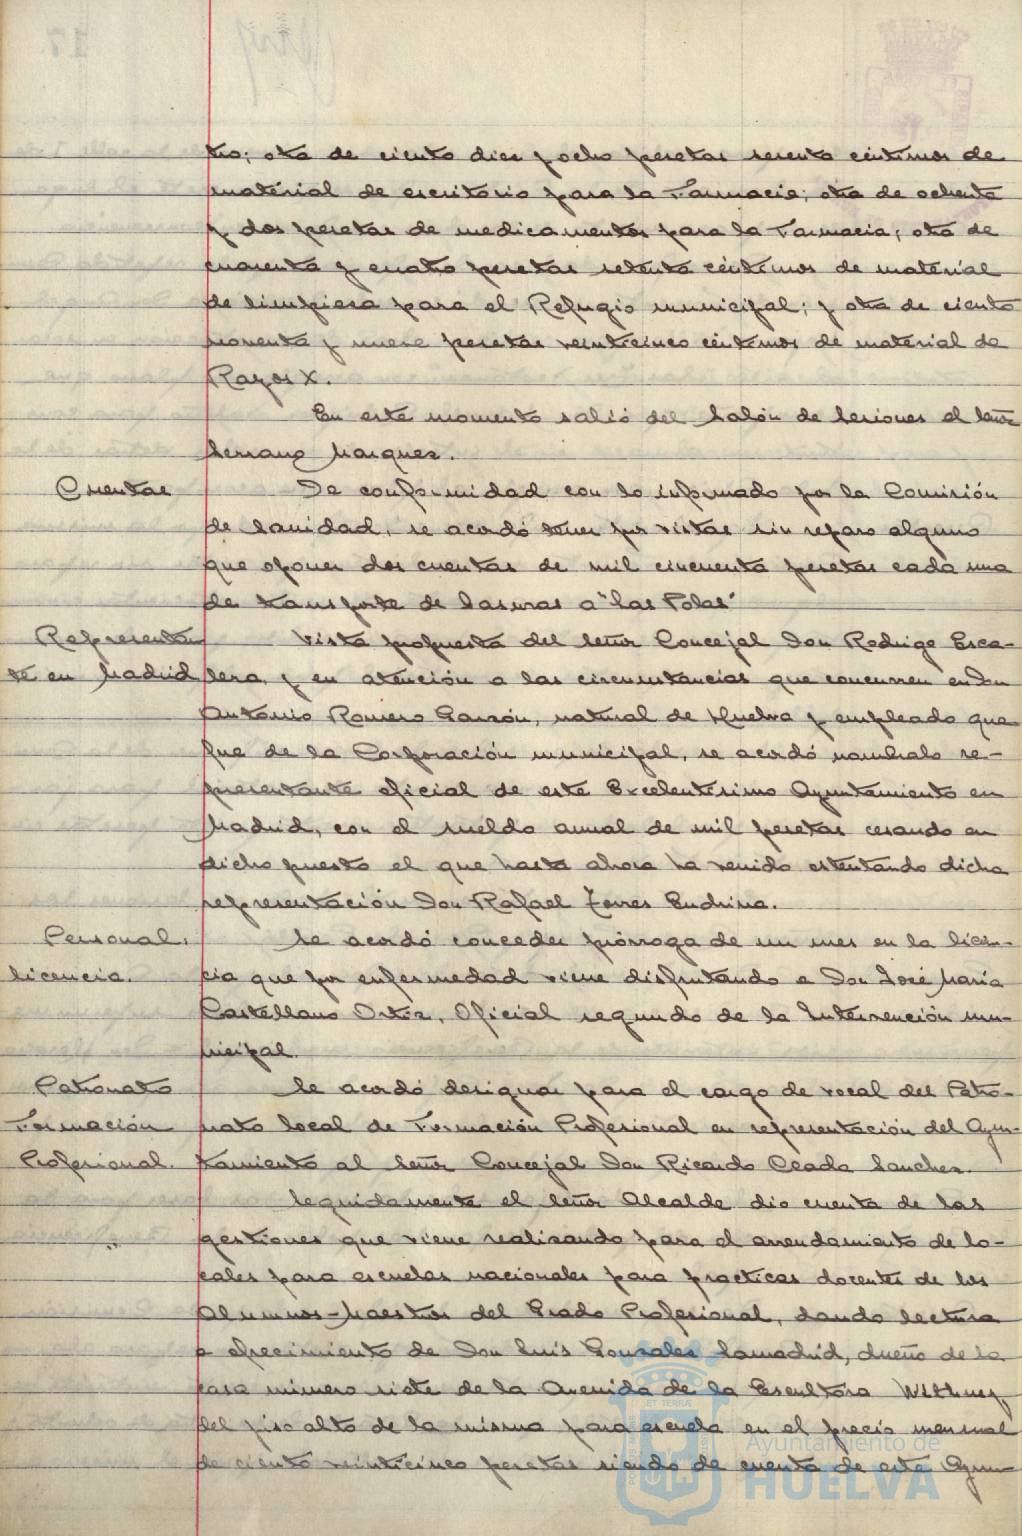 tro; otra de ciento diez y ocho pesetas sesenta céntimos de
material de escritorio para la Farmacia; otra de ochenta
y dos pesetas de medicamentos para la Farmacia; otra de
cuarenta y cuatro pesetas setenta céntimos de material
de limpieza para el Refugio municipal; y otra de ciento
noventa y nueve pesetas veinticinco céntimos de material de
Rayos X.
En este momento salió del Salón de Sesiones el Señor
Serrano Marquez.
Cuentas
De conformidad con lo informado por la Comisión
de Sanidad, se acordó tener por vistas sin reparo alguno
que oponer dos cuentas de mil cincuenta pesetas cada una
de transporte de basuras a "Las Polas"
Representan
te en Madrid
Vista propuesta del Señor Concejal Don Rodrigo Esca-
lera, y en atención a las circunstancias que concurren en Don
Antonio Romero Garzón, natural de Huelva y empleado que
fue de la Corporación municipal, se acordó nombralo re-
presentante oficial de este Excelentísimo Ayuntamiento en
Madrid, con el sueldo anual de mil pesetas cesando en
dicho puesto el que hasta ahora ha venido ostentando dicha
representación Don Rafael Torres Endrina.
Personal.
licencia.
Se acordó conceder prórroga de un mes en la licen-
cia que por enfermedad viene disfrutando a Don José María
Castellano Ortiz, Oficial segundo de la Intervención mu-
nicipal.
Patronato
Formación
Profesional.
Se acordó designar para el cargo de vocal del Patro-
nato local de Formación Profesional en representación del Ayun-
tamiento al Señor Concejal Don Ricardo Ceada Sanchez.
Seguidamente el Señor Alcalde dio cuenta de las
gestiones que viene realizando para el arrendamiento de lo-
cales para escuelas nacionales para practicas docentes de los
Alumnos-Maestros del Grado Profesional, dando lectura
a ofrecimiento de Don Luis Gonzalez Lamadrid, dueño de la
casa número siete de la Avenida de la Escultora Withney
del piso alto de la misma para escuela en el precio mensual
de ciento veinticinco pesetas siendo de cuenta de este Ayun-
Ayuntamiento de
HUELVA